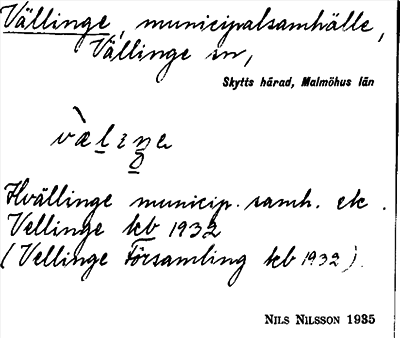 Vällinge, municipalsamhälle,
Vällinge sn,
Skytts härad, Malmöhus län
Hvällinge municip. samh. etc.
Vellinge kb 1932
(Vellinge Församling kb 1932).
NILS NILSSON 1935